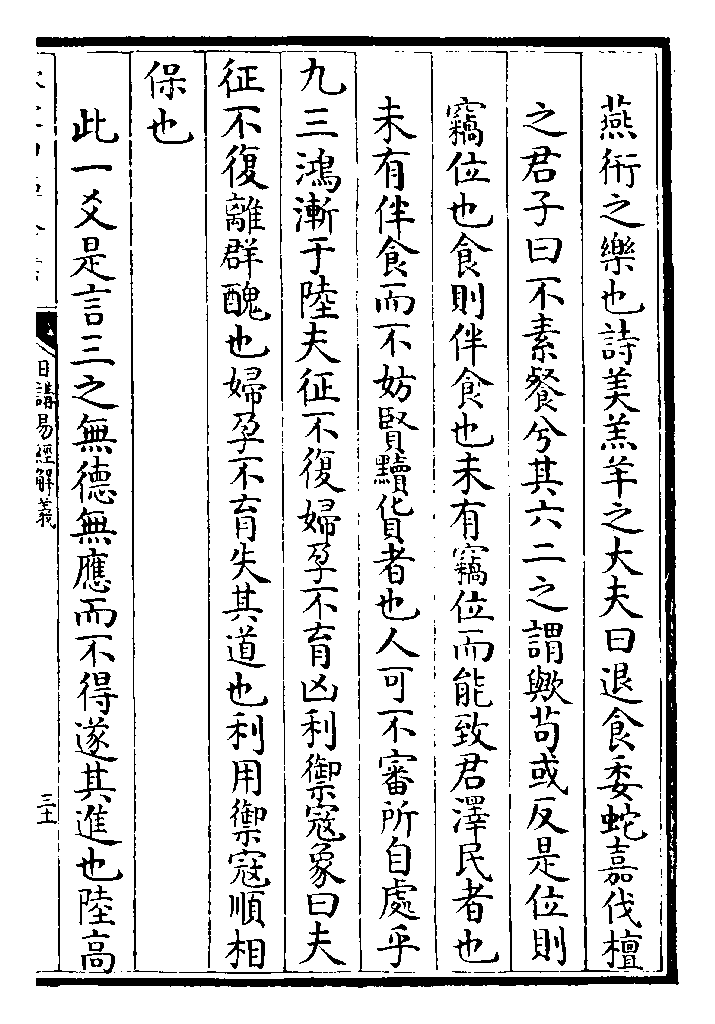 燕衎之樂也詩美羔羊之大夫曰退食委蛇嘉伐檀
之君子曰不素餐兮其六二之謂歟苟或反是位則
竊位也食則伴食也未有竊位而能致君澤民者也
未有伴食而不妨賢黷貨者也人可不審所自處乎
九三鴻漸于陸夫征不復婦孕不育凶利禦寇象曰夫
征不復離群醜也婦孕不育失其道也利用禦寇順相
保也
此一爻是言三之無德無應而不得遂其進也陸高
日講易經解義